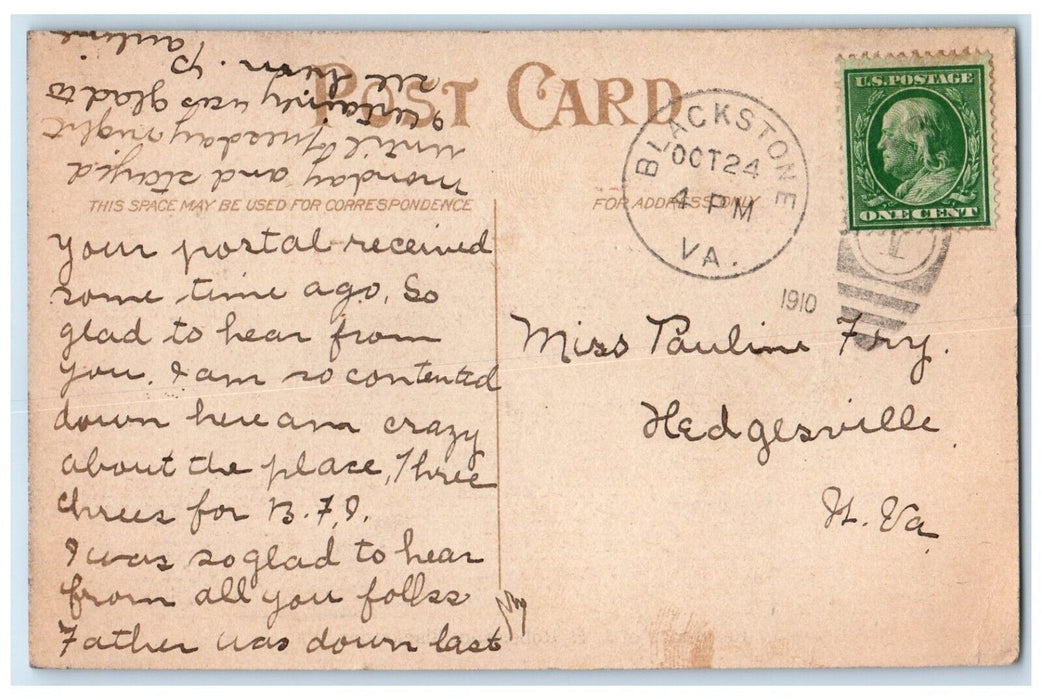 POST CARD
THIS SPACE MAY BE USED FOR CORRESPONDENCE
FOR ADDRESS ONLY
BLACKSTONE
OCT 24
4 PM
VA.
1910
U.S. POSTAGE
ONE CENT
Your portal received
some time ago. So
glad to hear from
you. I am so contented
down here am crazy
about the place, Three
chees for B.F.I.
I was so glad to hear
from all you folks
Father was down last
monday and stayed
until Tuesday night
I certainly was glad to
see him. Pauline
Miss Pauline Fry.
Hedgesville
W. Va.